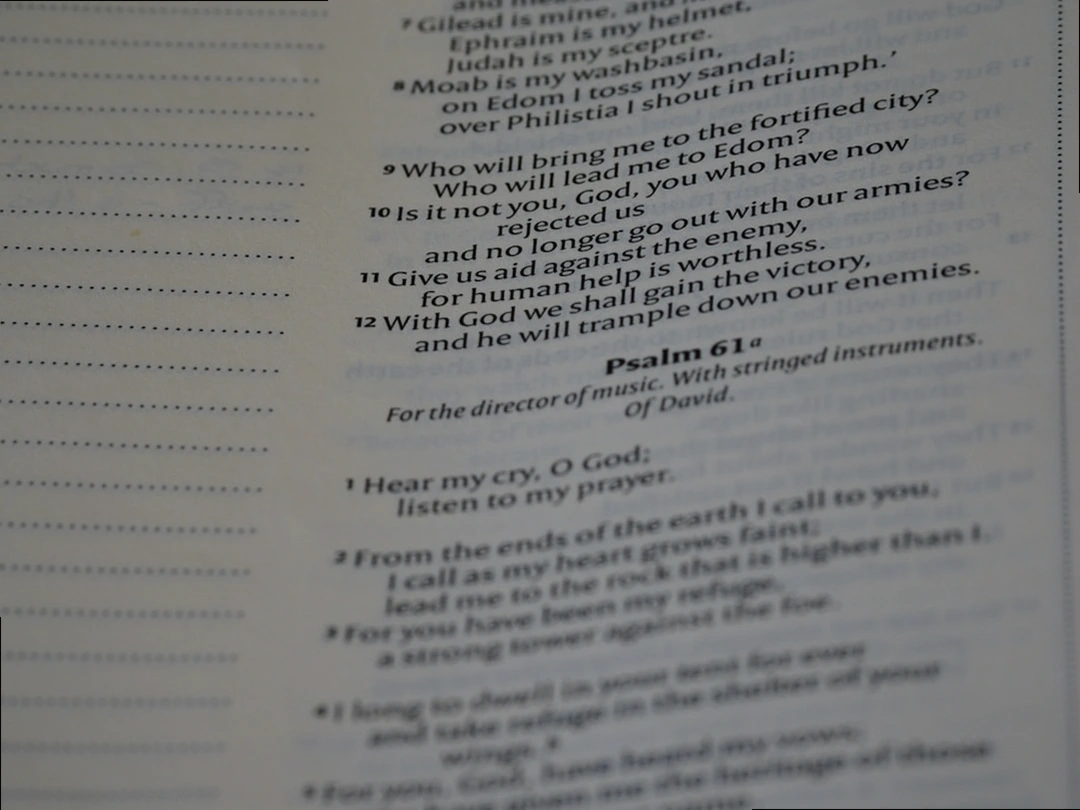 7 Gilead is mine, and
Ephraim is my helmet,
Judah is my sceptre.
8 Moab is my washbasin,
on Edom I toss my sandal;
over Philistia I shout in triumph.’
9 Who will bring me to the fortified city?
Who will lead me to Edom?
10 Is it not you, God, you who have now
rejected us
and no longer go out with our armies?
11 Give us aid against the enemy,
for human help is worthless.
12 With God we shall gain the victory,
and he will trample down our enemies.
Psalm 61a
For the director of music. With stringed instruments.
Of David.
1 Hear my cry, O God;
listen to my prayer.
2 From the ends of the earth I call to you,
I call as my heart grows faint;
lead me to the rock that is higher than I.
3 For you have been my refuge,
a strong tower against the foe.
4 I long to dwell in your tent for ever
and take refuge in the shelter of your
wings.
5 For you, God, have heard my vows;